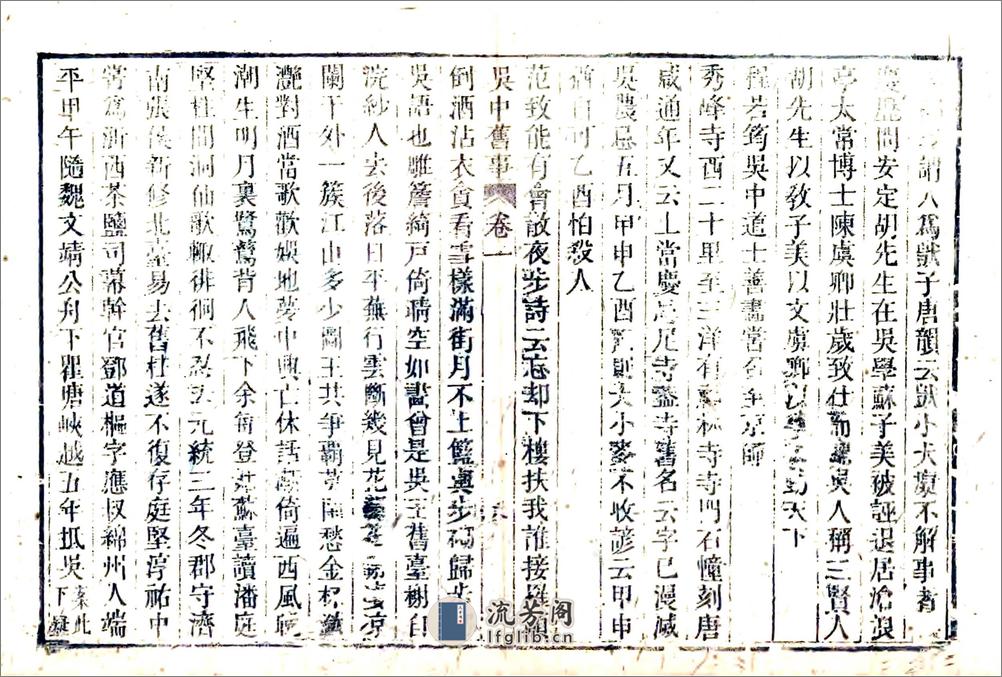 謂人爲獃子唐韻云獃小犬癡不解事者
慶曆間安定胡先生在吳學蘇子美被誣退居滄浪
亭太常博士陳虞卿壯歲致仕而歸吳人稱三賢人
胡先生以敎子美以文虞卿以天下
程若筠吳中道士善畫嘗召至京師
秀峰寺西二十里至三洋有蘇林寺寺門石幢刻唐
咸通年又云上當慶尼寺蓋寺舊名云字已漫滅
吳農忌五月甲申乙酉則大小麥不收諺云甲申
猶自可乙酉怕殺人
范致能有會散夜步詩云忘却下樓扶我誰接䍦顚
倒酒沾衣貪看雪樣滿街月不上籃輿步砌歸步
吳中舊事 卷一
吳語也雕簷綺戶倚晴空如畫曾是吳王舊臺榭自
浣紗人去後落日平蕪行雲斷幾見花凉
闌干外一簇江山多少圖王共爭霸莫閒愁金杯
灔對酒當歌歡娛地夢中興亡休話漸倚遍西風晚
潮生明月裏鷺鷥背人飛下余每登姑蘇臺讀潘庭
堅柱間洞仙歌輙徘徊不忍去元統三年冬郡守濟
南張侯新修北臺易去舊柱遂不復存庭堅淳祐中
嘗爲浙西茶鹽司幕幹官鄧道樞字應叔綿州人端
平甲午隨魏文靖公舟下瞿塘峽越五年抵吳 案此下疑
流芳阁
www.lfglib.cn